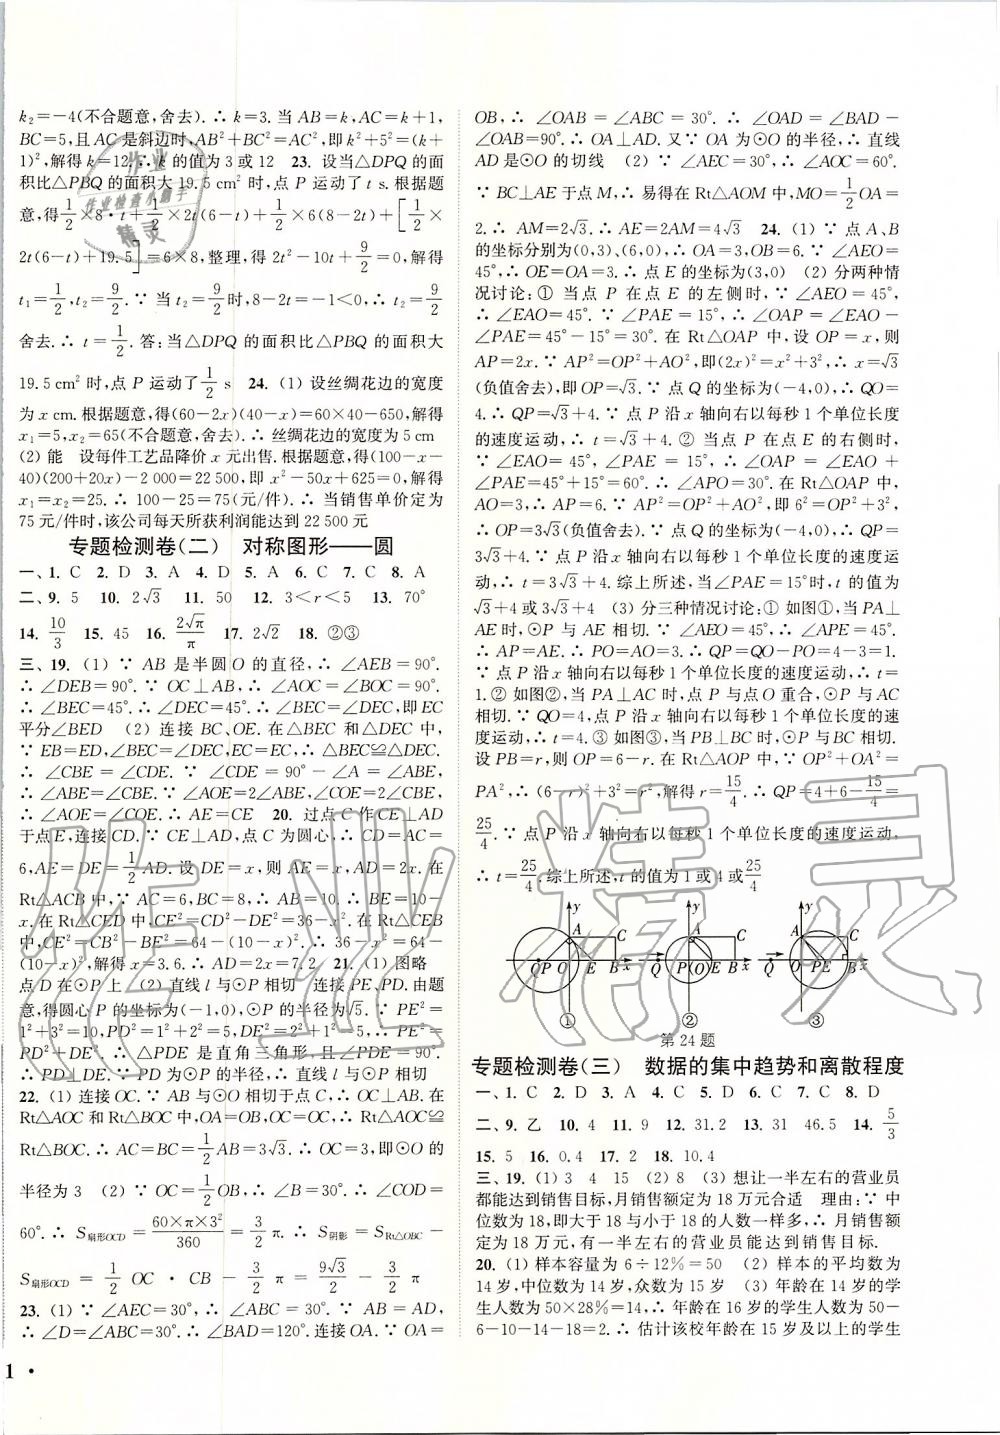 k₂=-4(不合题意,舍去).∴ k=3. 当 AB=k,AC=k+1,
BC=5,且 AC 是斜边时,AB²+BC²=AC²,即 k²+5²=(k+
1)²,解得 k=12.∴ k 的值为 3 或 12 23. 设当△DPQ 的面
积比△PBQ 的面积大 19.5 cm² 时,点 P 运动了 t s. 根据题
意,得 1/2×8·t+1/2×2t(6-t)+1/2×6(8-2t)+[1/2×
2t(6-t)+19.5]=6×8,整理,得 2t²-10t+9/2=0,解得
t₁=1/2,t₂=9/2.∵ 当 t₂=9/2时,8-2t=-1<0,∴ t₂=9/2
舍去.∴ t=1/2. 答:当△DPQ 的面积比△PBQ 的面积大
19.5 cm² 时,点 P 运动了1/2 s 24. (1) 设丝绸花边的宽度
为 x cm. 根据题意,得(60-2x)(40-x)=60×40-650,解得
x₁=5,x₂=65(不合题意,舍去).∴ 丝绸花边的宽度为 5 cm
(2) 能 设每件工艺品降价 x 元出售. 根据题意,得(100-x-
40)(200+20x)-2 000=22 500,即 x²-50x+625=0,解得
x₁=x₂=25.∴ 100-25=75(元/件).∴ 当销售单价定为
75 元/件时,该公司每天所获利润能达到 22 500 元
专题检测卷(二) 对称图形——圆
一、1. C 2. D 3. A 4. D 5. A 6. C 7. C 8. A
二、9. 5 10. 2√3 11. 50 12. 3<r<5 13. 70°
14. 10/3 15. 45 16. 2√π/π 17. 2√2 18. ②③
三、19. (1) ∵ AB 是半圆 O 的直径,∴ ∠AEB=90°.
∴ ∠DEB=90°.∵ OC⊥AB,∴ ∠AOC=∠BOC=90°.
∴ ∠BEC=45°.∴ ∠DEC=45°.∴ ∠BEC=∠DEC,即 EC
平分∠BED (2) 连接 BC、OE. 在△BEC 和△DEC 中,
∵ EB=ED,∠BEC=∠DEC,EC=EC,∴ △BEC≌△DEC.
∴ ∠CBE = ∠CDE. ∵ ∠CDE = 90° - ∠A = ∠ABE,
∴ ∠ABE=∠CBE.∵ ∠AOE=2∠ABE,∠COE=2∠CBE,
∴ ∠AOE=∠COE.∴ AE=CE 20. 过点 C 作 CE⊥AD
于点 E,连接 CD.∵ CE⊥AD,点 C 为圆心,∴ CD=AC=
6,AE=DE=1/2AD. 设 DE=x,则 AE=x,AD=2x. 在
Rt△ACB 中,∵ AC=6,BC=8,∴ AB=10.∴ BE=10-
x. 在 Rt△CED 中,CE²=CD²-DE²=36-x². 在 Rt△CEB
中,CE²=CB²-BE²=64-(10-x)².∴ 36-x²=64-
(10-x)²,解得 x=3.6.∴ AD=2x=7.2 21. (1) 图略
点 D 在⊙P 上 (2) 直线 l 与⊙P 相切 连接 PE、PD. 由题
意,得圆心 P 的坐标为(-1,0),⊙P 的半径为√5.∵ PE²=
1²+3²=10,PD²=1²+2²=5,DE²=2²+1²=5,∴ PE²=
PD²+DE².∴ △PDE 是直角三角形,且∠PDE=90°.
∴ PD⊥l.∵ PD 是⊙P 的半径,∴ 直线 l 与⊙P 相切
22. (1) 连接 OC.∵ AB 与⊙O 相切于点 C,∴ OC⊥AB. 在
Rt△AOC 和 Rt△BOC 中,OA=OB,OC=OC,∴ Rt△AOC≌
Rt△BOC.∴ AC=BC=1/2AB=3√3.∴ OC=3,即⊙O 的
半径为 3 (2) ∵ OC=1/2OB,∴ ∠B=30°.∴ ∠COD=
60°.∴ S扇形OCD=60×π×3²/360=3/2π.∴ S阴影=S Rt△OBC-
S扇形OCD=1/2 OC·CB-3/2π=9√3/2-3/2π
23. (1) ∵ ∠AEC=30°,∴ ∠ABC=30°.∵ AB=AD,
∴ ∠D=∠ABC=30°.∴ ∠BAD=120°. 连接 OA.∵ OA=
OB,∴ ∠OAB = ∠ABC = 30°.∴ ∠OAD = ∠BAD -
∠OAB=90°.∴ OA⊥AD. 又∵ OA 为⊙O 的半径,∴ 直线
AD 是⊙O 的切线 (2) ∵ ∠AEC=30°,∴ ∠AOC=60°.
∵ BC⊥AE 于点 M,∴ 易得在 Rt△AOM 中,MO=1/2OA=
2.∴ AM=2√3.∴ AE=2AM=4√3 24. (1) ∵ 点 A、B
的坐标分别为(0,3)、(6,0),∴ OA=3,OB=6.∵ ∠AEO=
45°,∴ OE=OA=3.∴ 点 E 的坐标为(3,0) (2) 分两种情
况讨论:① 当点 P 在点 E 的左侧时,∵ ∠AEO=45°,
∴ ∠EAO=45°.∵ ∠PAE=15°,∴ ∠OAP=∠EAO-
∠PAE=45°-15°=30°. 在 Rt△OAP 中,设 OP=x,则
AP=2x.∵ AP²=OP²+AO²,即(2x)²=x²+3²,∴ x=√3
(负值舍去),即 OP=√3.∵ 点 Q 的坐标为(-4,0),∴ QO=
4.∴ QP=√3+4.∵ 点 P 沿 x 轴向右以每秒 1 个单位长度
的速度运动,∴ t=√3+4. ② 当点 P 在点 E 的右侧时,
∵ ∠EAO=45°,∠PAE=15°,∴ ∠OAP=∠EAO+
∠PAE=45°+15°=60°.∴ ∠APO=30°. 在 Rt△OAP 中,
AO=3,∴ AP=6.∵ AP²=OP²+AO²,即 6²=OP²+3²,
∴ OP=3√3(负值舍去).∵ 点 Q 的坐标为(-4,0),∴ QO=
4.∴ QP=3√3+4.∵ 点 P 沿 x 轴向右以每秒 1 个单位长度的速度运
动,∴ t=3√3+4. 综上所述,当∠PAE=15°时,t 的值为
√3+4 或 3√3+4 (3) 分三种情况讨论:① 如图①,当 PA⊥
AE 时,⊙P 与 AE 相切.∵ ∠AEO=45°,∴ ∠APE=45°.
∴ AP=AE.∴ PO=AO=3.∴ QP=QO-PO=4-3=1.
∵ 点 P 沿 x 轴向右以每秒 1 个单位长度的速度运动,∴ t=
1. ② 如图②,当 PA⊥AC 时,点 P 与点 O 重合,⊙P 与 AC
相切.∵ QO=4,点 P 沿 x 轴向右以每秒 1 个单位长度的速
度运动,∴ t=4. ③ 如图③,当 PB⊥BC 时,⊙P 与 BC 相切.
设 PB=r,则 OP=6-r. 在 Rt△AOP 中,∵ OP²+OA²=
PA²,∴ (6-r)²+3²=r²,解得 r=15/4.∴ QP=4+6-15/4=
25/4.∵ 点 P 沿 x 轴向右以每秒 1 个单位长度的速度运动,
∴ t=25/4. 综上所述,t 的值为 1 或 4 或 25/4
y A C QP O E B x ①
y A C Q P(O) E B x ②
y A C Q O P E B x ③
第 24 题
专题检测卷(三) 数据的集中趋势和离散程度
一、1. C 2. D 3. A 4. C 5. D 6. C 7. C 8. D
二、9. 乙 10. 4 11. 9 12. 31.2 13. 31 46.5 14. 5/3
15. 5 16. 0.4 17. 2 18. 10.4
三、19. (1) 3 4 15 (2) 8 (3) 想让一半左右的营业员
都能达到销售目标,月销售额定为 18 万元合适 理由:∵ 中
位数为 18,即大于 18 与小于 18 的人数一样多,∴ 月销售额
定为 18 万元,有一半左右的营业员能达到销售目标.
20. (1) 样本容量为 6÷12%=50 (2) 样本的平均数为
14 岁,中位数为 14 岁,众数为 15 岁 (3) 年龄在 14 岁的学
生人数为 50×28%=14,∴ 年龄在 16 岁的学生人数为 50-
6-10-14-18=2.∴ 估计该校年龄在 15 岁及以上的学生
1 ·
作业
作业检查小助手
精灵
作业精灵